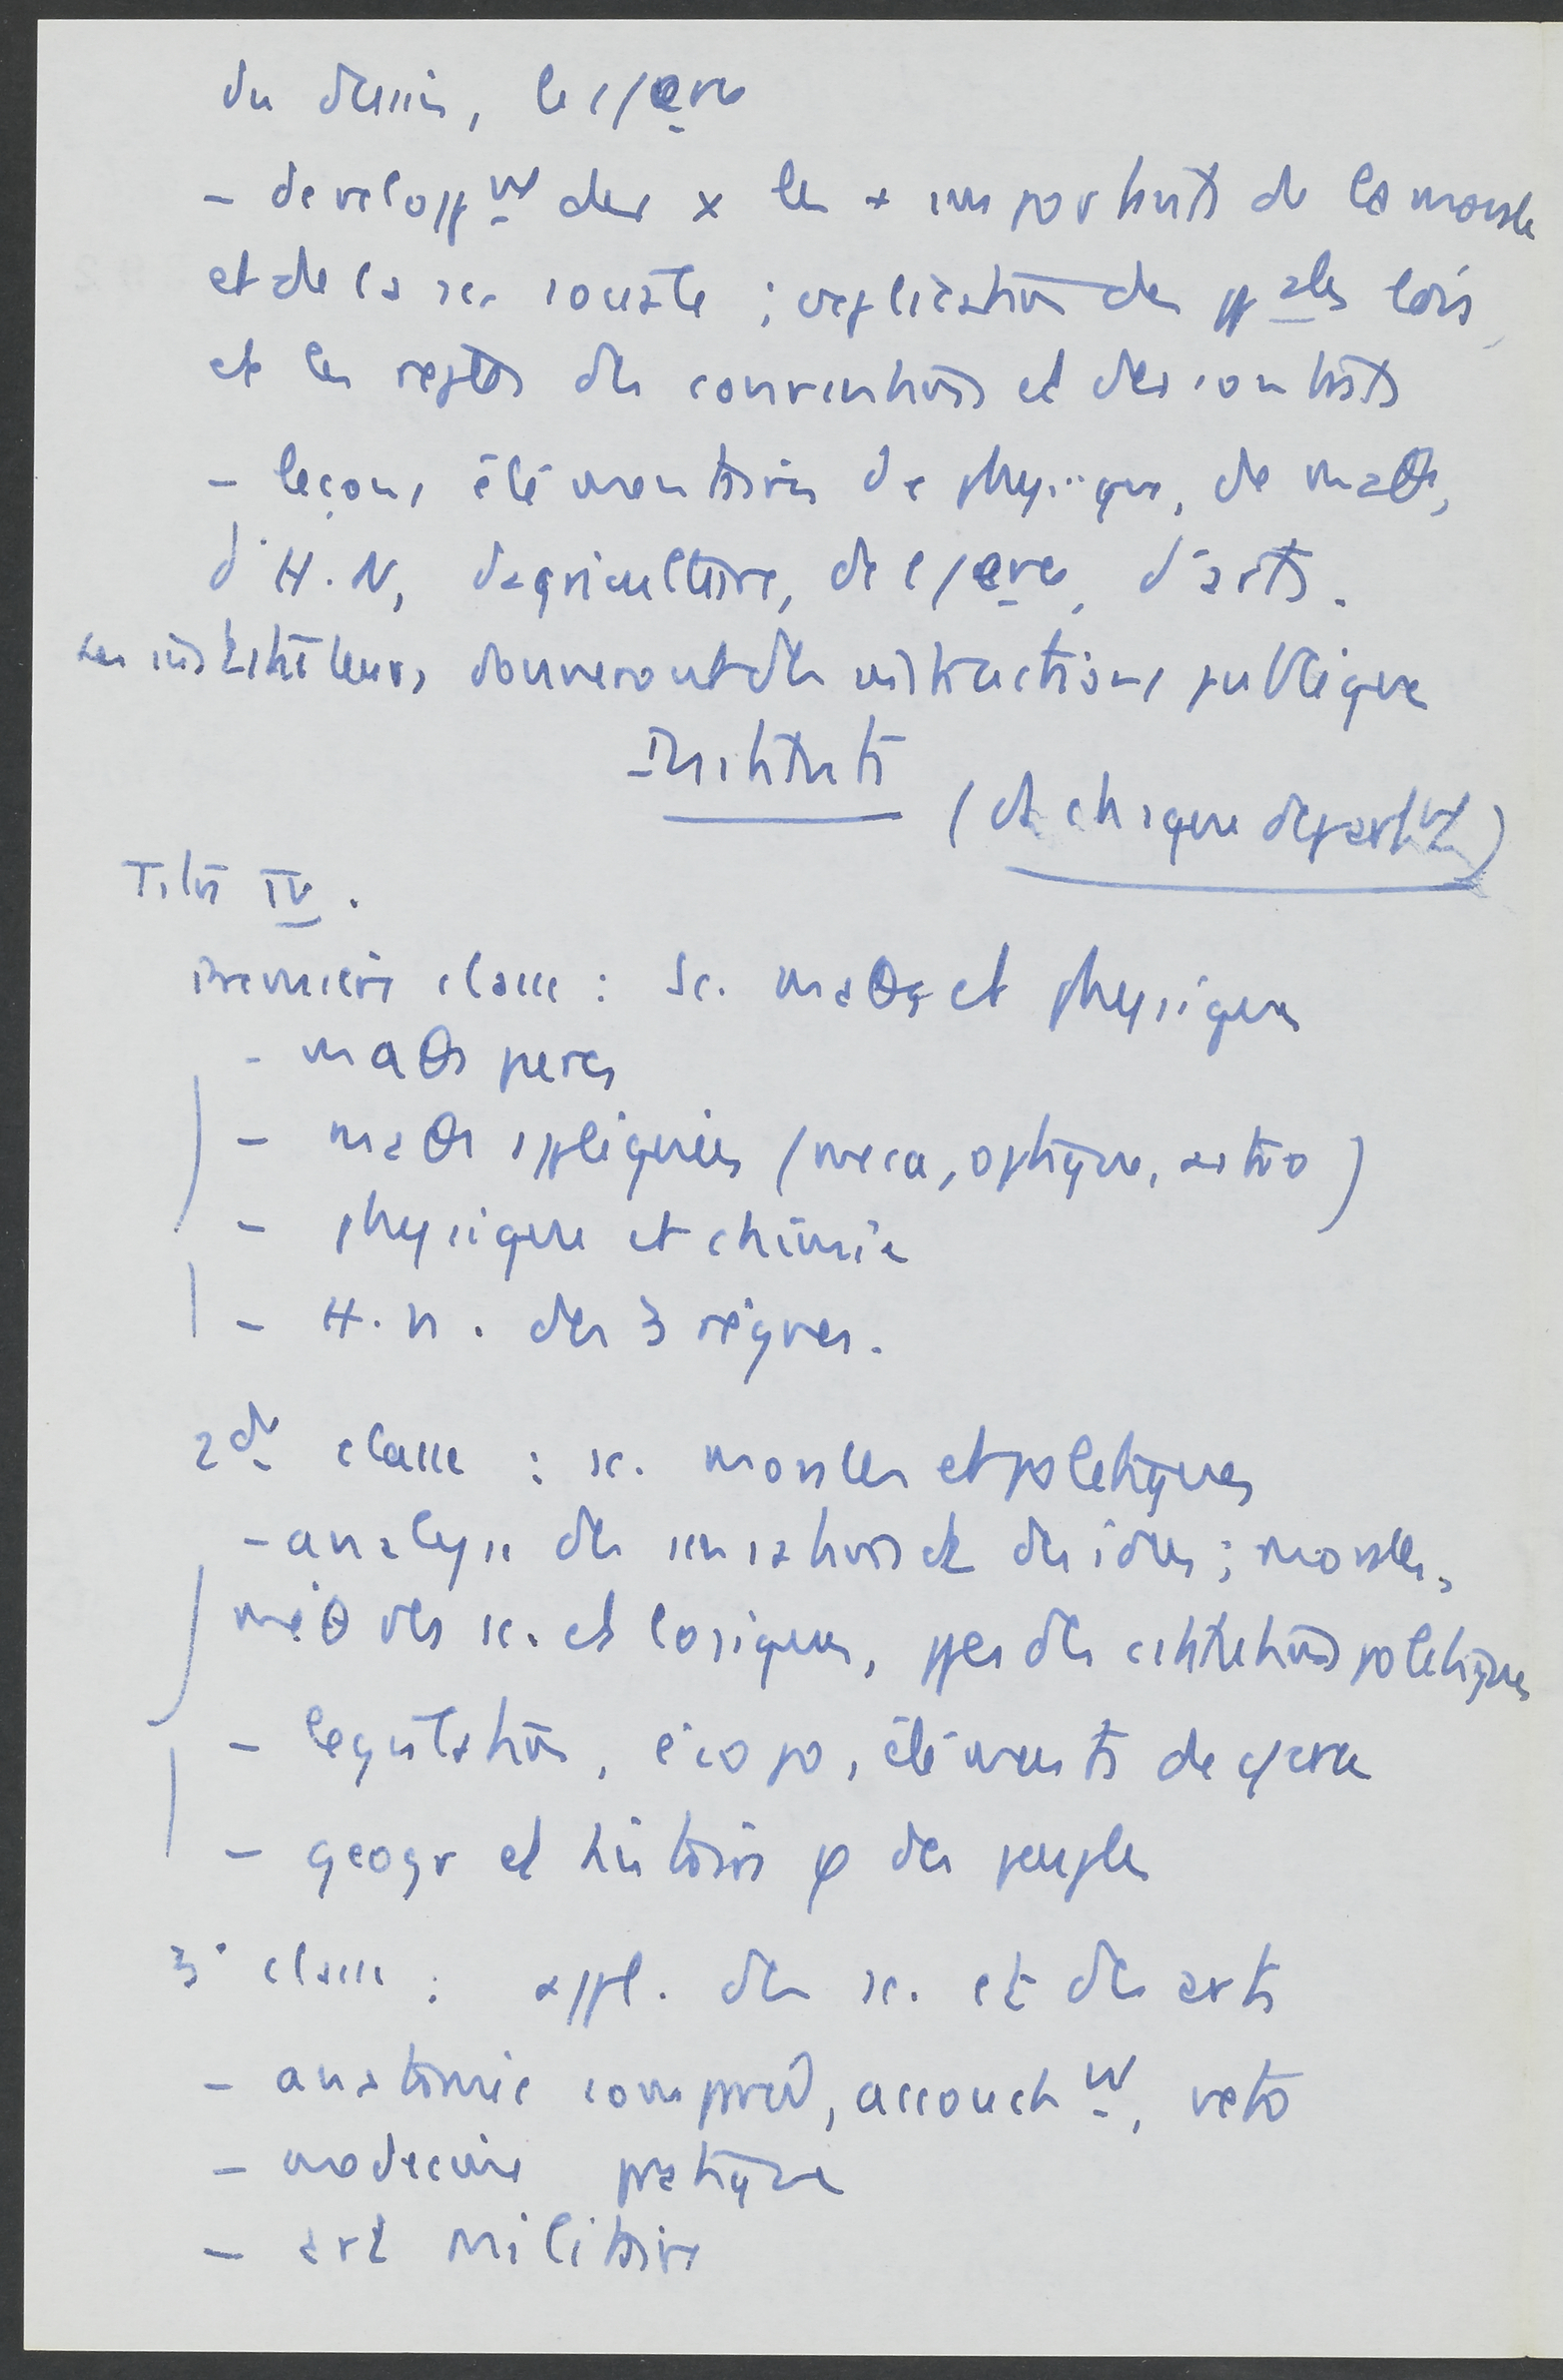 du dessin, le c/erce
- developpt des x les + importants de la morale
et de la sc. sociale ; explication des ppales lois
et les regles des conventions et des contrats
- leçons élémentaires de physique, de maθs,
d'H.N, d'agriculture, de c/erce, d'arts.
Les instituteurs donneront des instructions publiques
Instituts
(ds chaque departt)
Titre IV.
Premiere classe : Sc. maθq et physiques
- maθs pures
- maθs appliquées (meca, optique, astro)
- physique et chimie
- H.N. des 3 règnes.
2de classe : sc. morales et politiques
- analyse des sensations et des idées ; morale,
méθ des sc. et logique, ppes des cstitutions politiques
- legislation, éco po, éléments de c/erce
- geogr et histoire φ des peuples
3° classe : appl. des sc. et des arts
- anatomie comparée, accoucht, veto
- medecine pratique
- art militaire